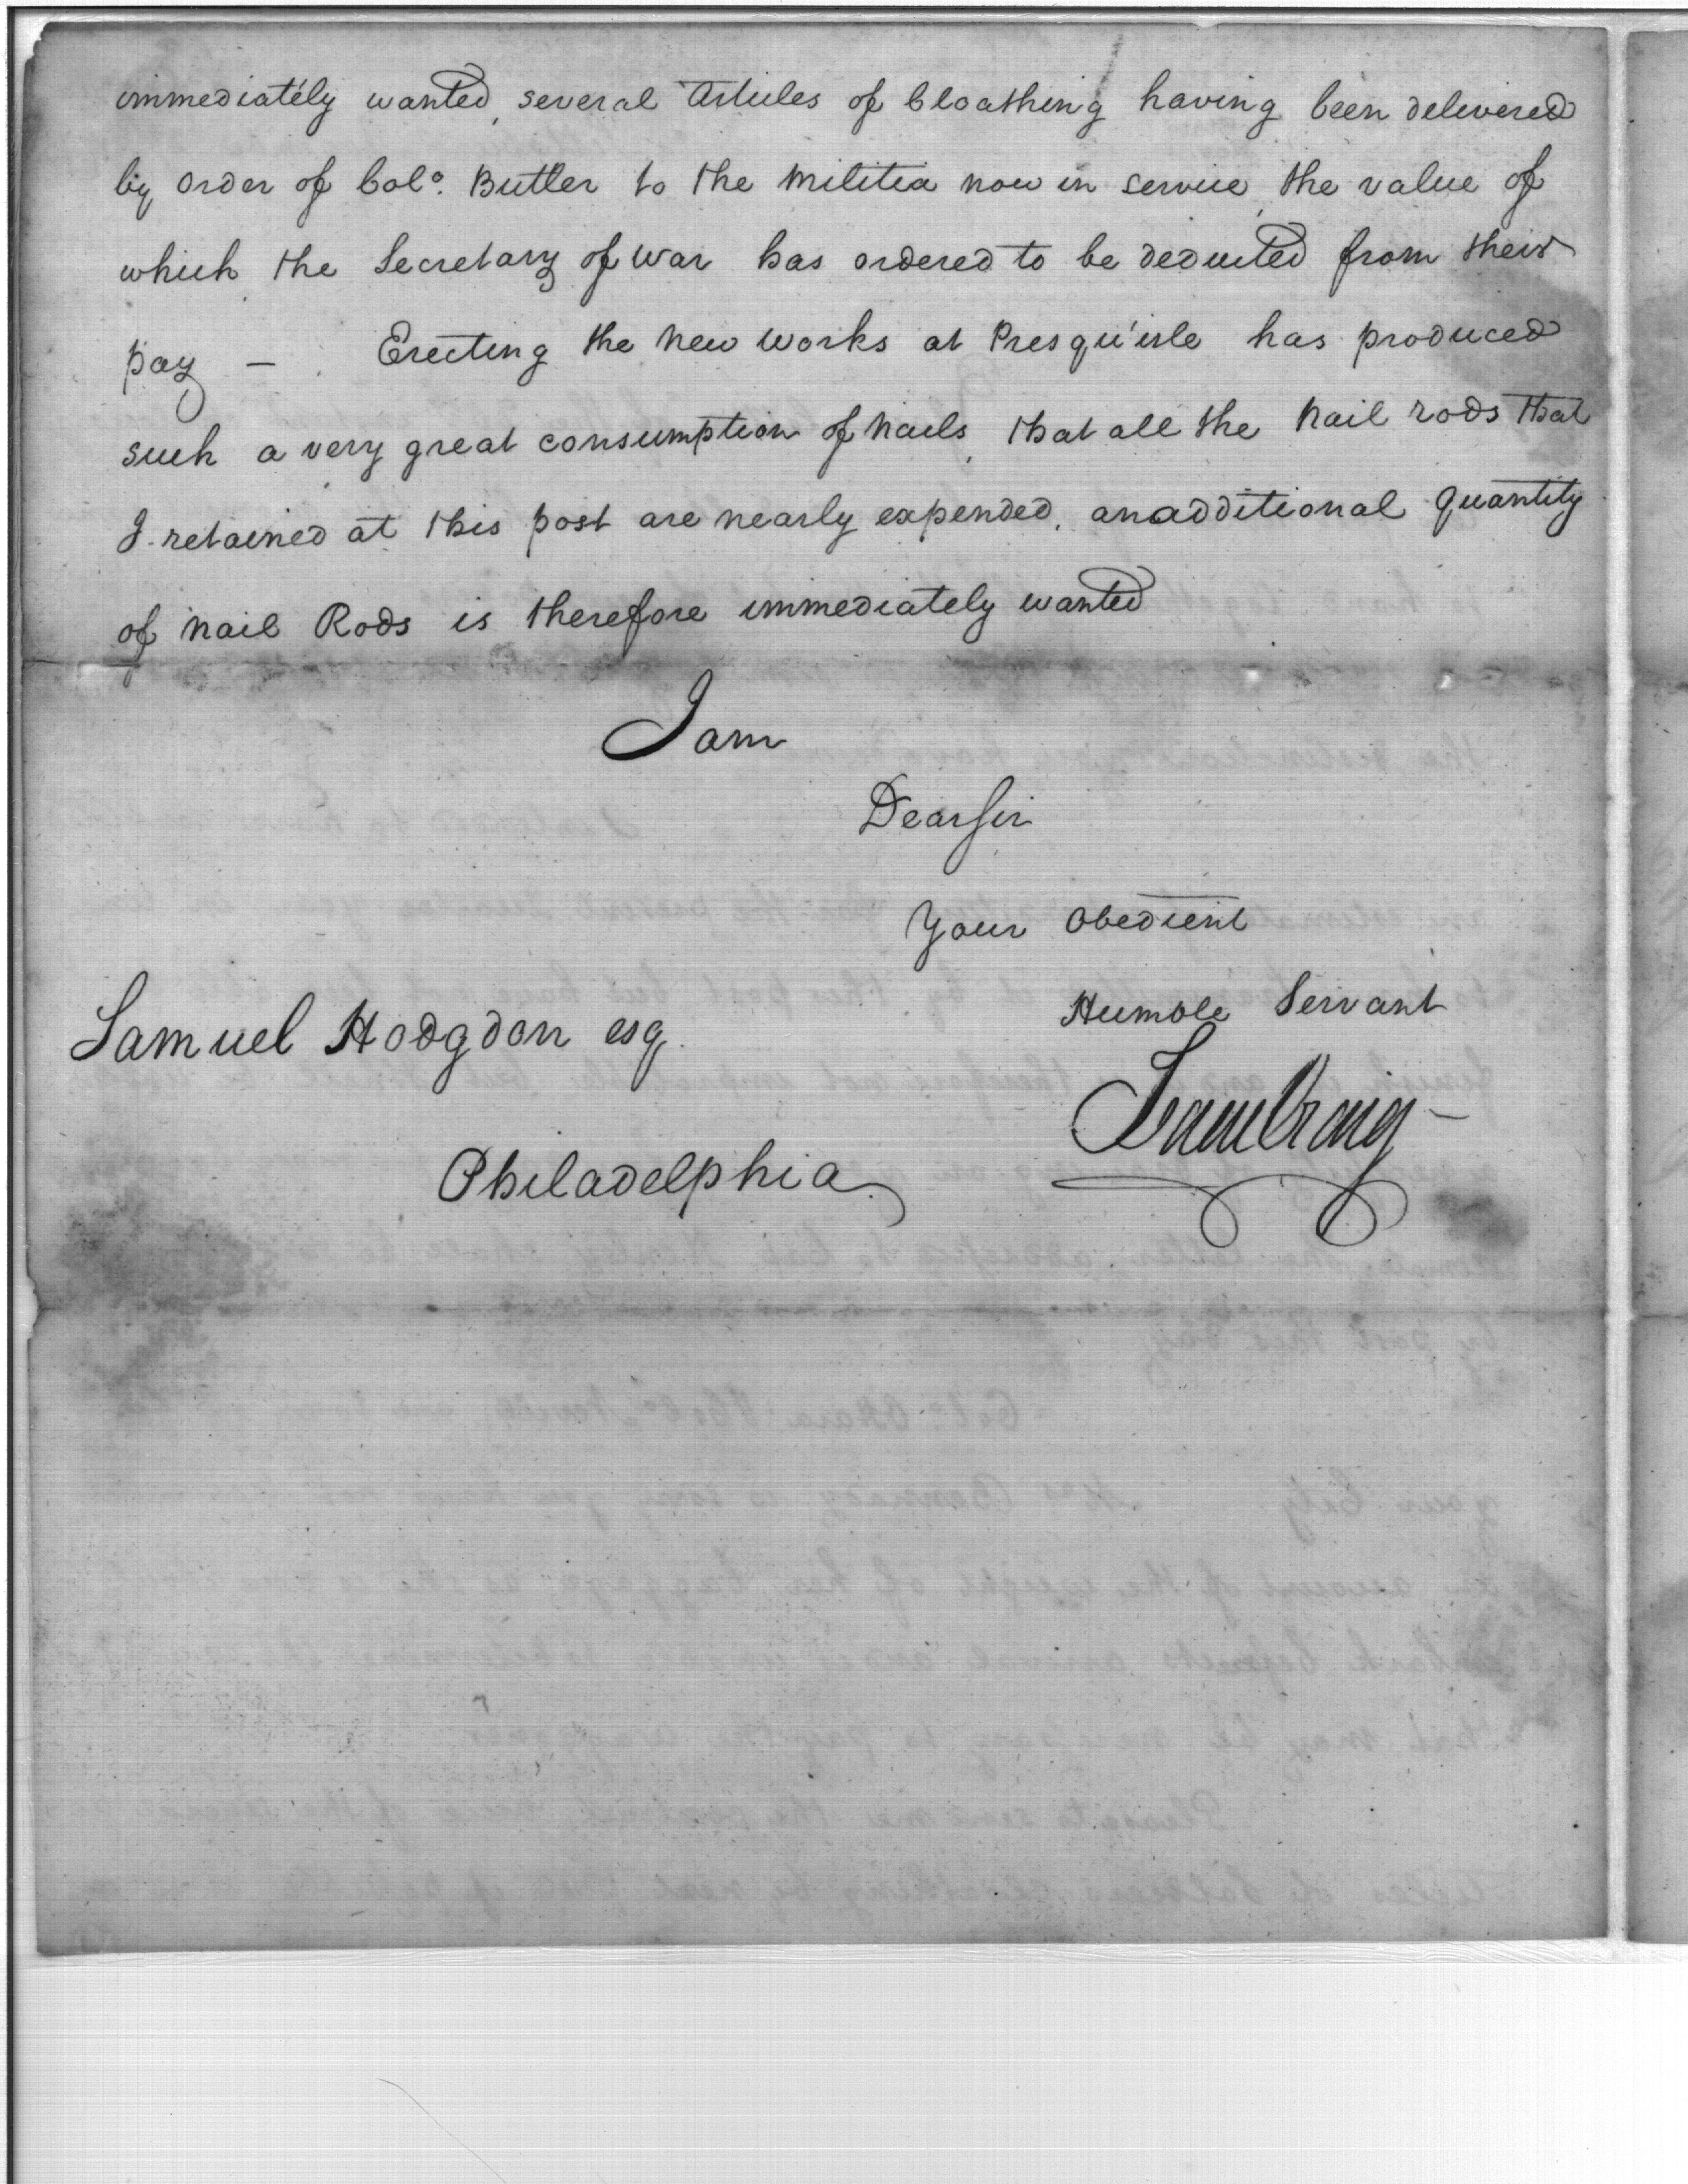 immediately wanted, several Articles of Cloathing having been delivered
by order of Colo. Butler to the Militia now in service, the value of
which the Secretary of War has ordered to be deducted from their
pay — Erecting the new works at Presqu'isle has produced
such a very great consumption of Nails, that all the Nail rods that
I retained at this post are nearly expended, an additional Quantity
of Nail Rods is therefore immediately wanted
I am
Dear Sir
Your Obedient
Humble Servant
Samuel Hodgdon esq.
Isaac Craig —
Philadelphia